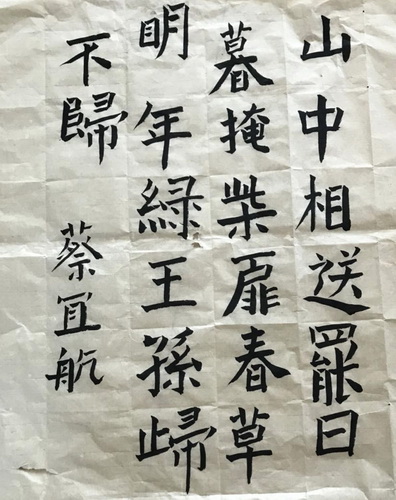 山中相送罷日
暮掩柴扉春草
明年綠王孫歸
不歸
蔡宜航